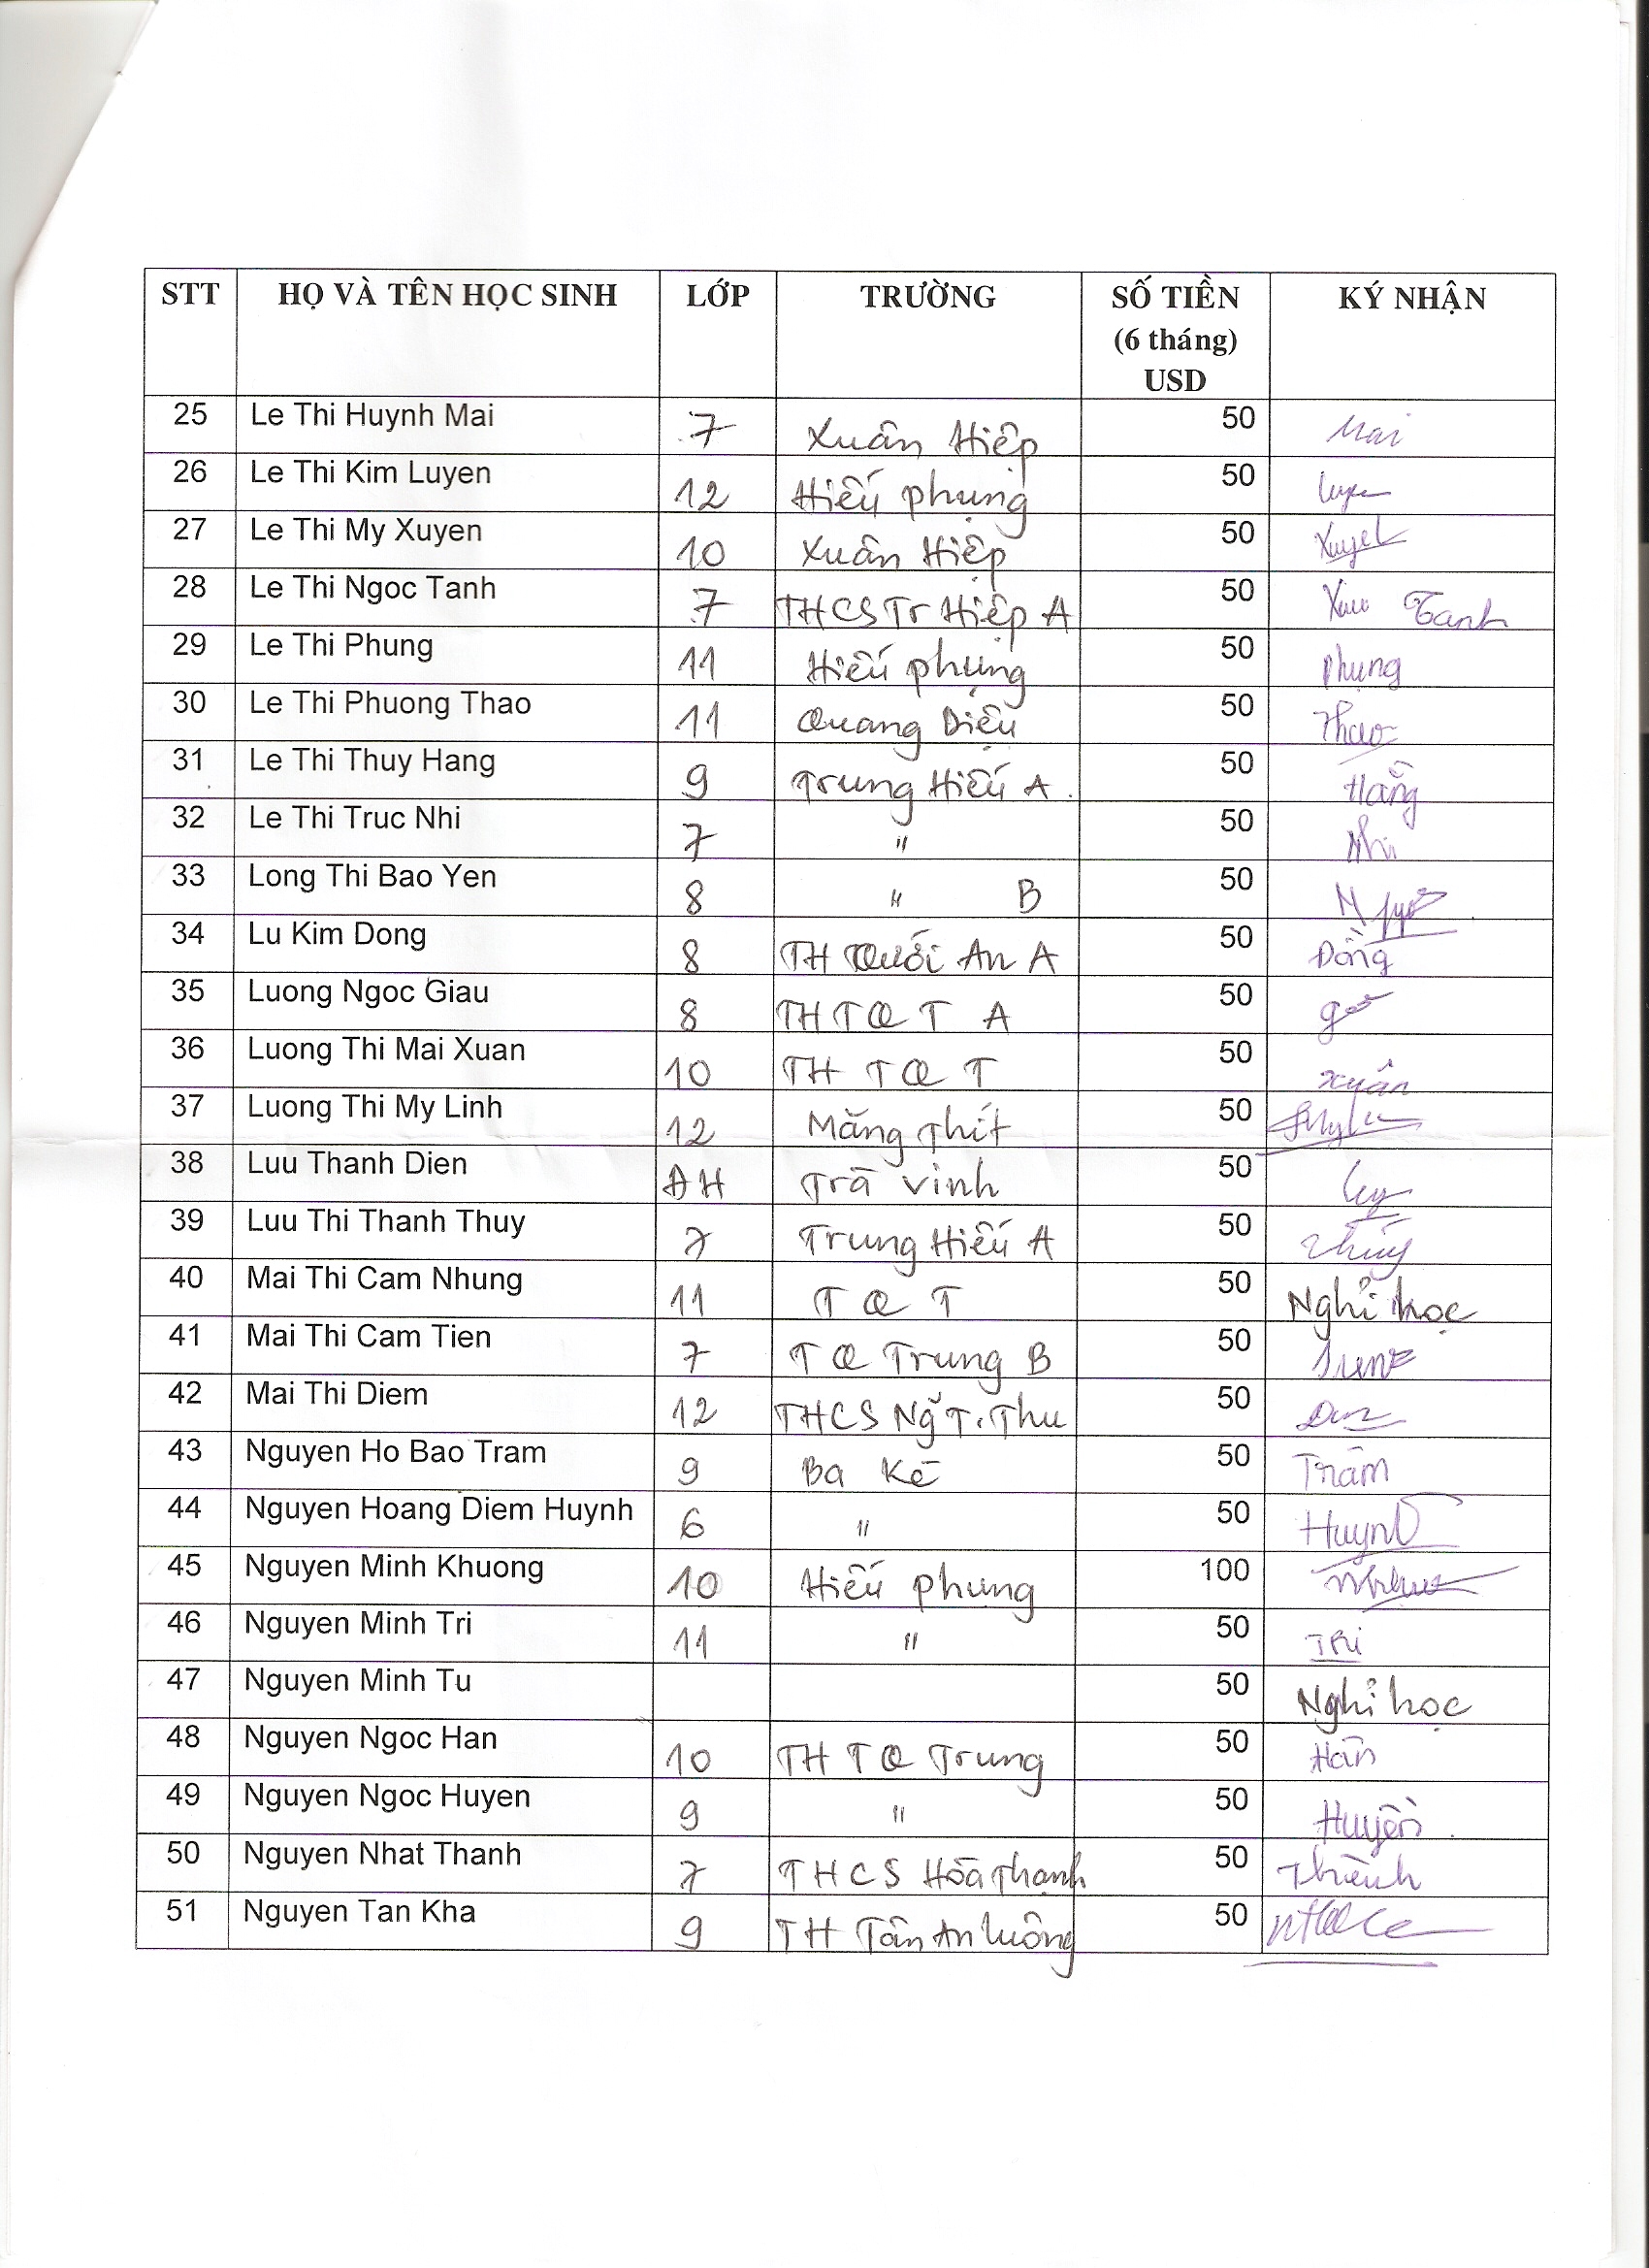 STT HỌ VÀ TÊN HỌC SINH LỚP TRƯỜNG SỐ TIỀN KÝ NHẬN
(6 tháng)
USD
25 Le Thi Huynh Mai 7 Xuân Hiệp 50 Mai
26 Le Thi Kim Luyen 12 Hiếu phụng 50
27 Le Thi My Xuyen 10 Xuân Hiệp 50
28 Le Thi Ngoc Tanh 7 THCS Tr Hiệp A 50 Tanh
29 Le Thi Phung 11 Hiếu phụng 50 phụng
30 Le Thi Phuong Thao 11 Quang Diệu 50 Thao
31 Le Thi Thuy Hang 9 Trung Hiếu A. 50 Hằng
32 Le Thi Truc Nhi 7 " 50 Nhi
33 Long Thi Bao Yen 8 " B 50
34 Lu Kim Dong 8 TH Quới An A 50 Đồng
35 Luong Ngoc Giau 8 TH T Q T A 50
36 Luong Thi Mai Xuan 10 TH T Q T 50 xuân
37 Luong Thi My Linh 12 Măng Thít 50
38 Luu Thanh Dien ĐH Trà Vinh 50
39 Luu Thi Thanh Thuy 7 Trung Hiếu A 50 Thúy
40 Mai Thi Cam Nhung 11 T Q T 50 Nghỉ học
41 Mai Thi Cam Tien 7 T Q Trung B 50
42 Mai Thi Diem 12 THCS Ng T. Thu 50
43 Nguyen Ho Bao Tram 9 Ba Kè 50 Trâm
44 Nguyen Hoang Diem Huynh 6 " 50 Huynh
45 Nguyen Minh Khuong 10 Hiếu phụng 100
46 Nguyen Minh Tri 11 " 50 TRí
47 Nguyen Minh Tu 50 Nghỉ học
48 Nguyen Ngoc Han 10 TH T Q Trung 50 Hân
49 Nguyen Ngoc Huyen 9 " 50 Huyền
50 Nguyen Nhat Thanh 7 THCS Hòa Thạnh 50 Thành
51 Nguyen Tan Kha 9 TH Tân An Luông 50